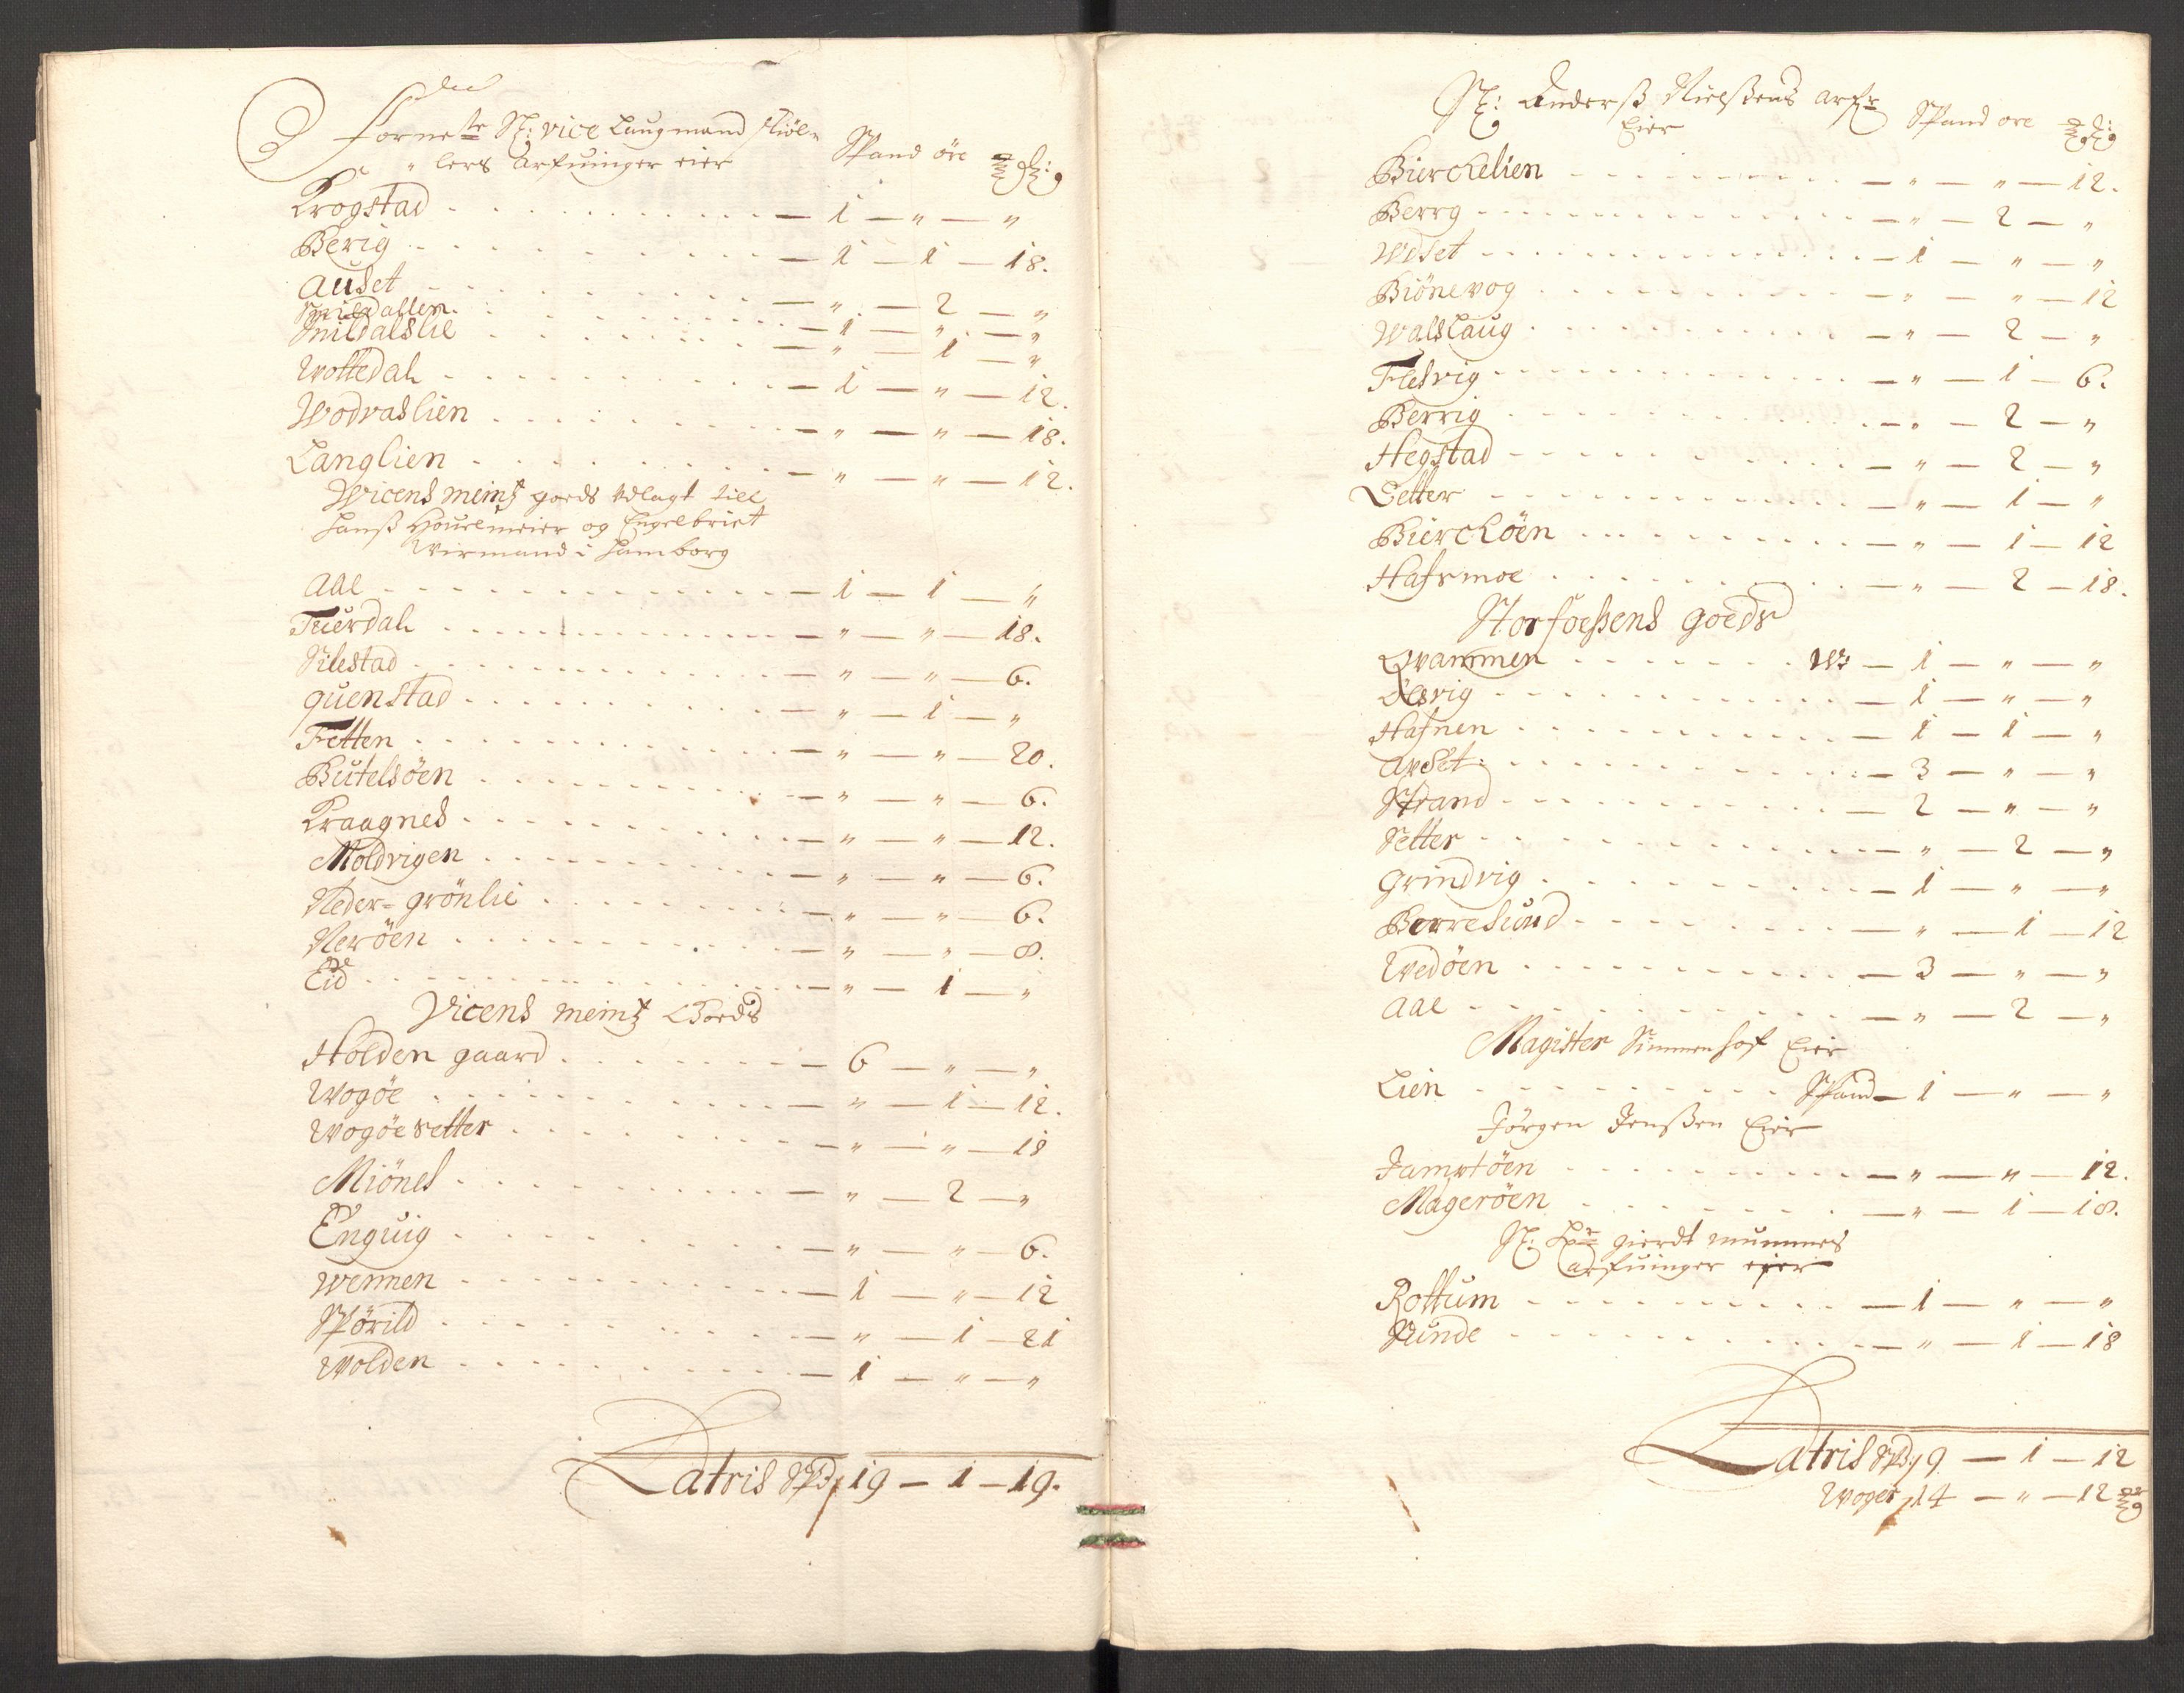 Forneste Sl: vice Laugmand Kiöl-
lers Arfuinger eier Spand öre
Krogstad — 1 — „ — „
Berig — 1 — 1 — 18.
Auset — „ — 2 — „
Snildallen — 1 — „ — „
Snildalslie — „ — 1 — „
Wottedal — 1 — „ — 12.
Wodvaslien — „ — „ — 18.
Langlien — „ — „ — 12.
Wicens meintz goeds udlagt till
Hanß Houelmeier og Engelbriet
Wirmand i Hamborg
Aal — 1 — 1 — „
Tuerdal — „ — „ — 18.
Silestad — „ — „ — 6.
quenstad — „ — 1 — „
Fetten — „ — „ — 20.
Butelsöen — „ — „ — 6.
Kraagnes — „ — „ — 12.
Moldvigen — „ — „ — 6.
Neder-grönlie — „ — „ — 6.
Neröen — „ — „ — 8.
Eide — „ — 1 — „
Vicens meintz Goeds
Holden gaard — 6 — „ — „
Wogöe — „ — 1 — 12.
Wogöe setter — „ — „ — 18
Miönes — „ — 2 — „
Enguig — „ — „ — 6.
Wennen — 1 — „ — 12
Spörild — „ — 1 — 21
Wolden — 1 — „ — „
Latris Spd 19 — 1 — 19.
Sl: Anderß Nielßens arfr
Eier Spand ore
Bierckelien — „ — „ — 12.
Berrg — „ — 2 — „
Wdset — 1 — „ — „
Biönevog — „ — „ — 12
Walslaug — „ — 2 — „
Flesvig — „ — 1 — 6.
Berrig — „ — 2 — „
Hegstad — „ — 2 — „
Setter — „ — 1 — „
Biercköen — „ — 1 — 12
Hafsmoe — „ — 2 — 18.
Storfoeßens goeds
Qvammen — 1 — „ — „
Olsvig — 1 — „ — „
Hafnen — 1 — 1 — „
Avset — 3 — „ — „
Strand — 2 — „ — „
Setter — „ — 2 — „
Grindvig — 1 — „ — „
Borresund — „ — 1 — 12
Wedöen — 3 — „ — „
Aal — „ — 2 — „
Magister Simmenhof Eier
Lien Spand — 1 — „ — „
Jörgen Jenßen Eier
Jamtöen — „ — „ — 12.
Mageröen — „ — 1 — 18.
Sl: Hr gierdt mummes
arfuinger eier
Rottum — 1 — „ — „
Sunde — „ — 1 — 18
Latris Spd 9 — 1 — 12
Woger 14 — „ — 12